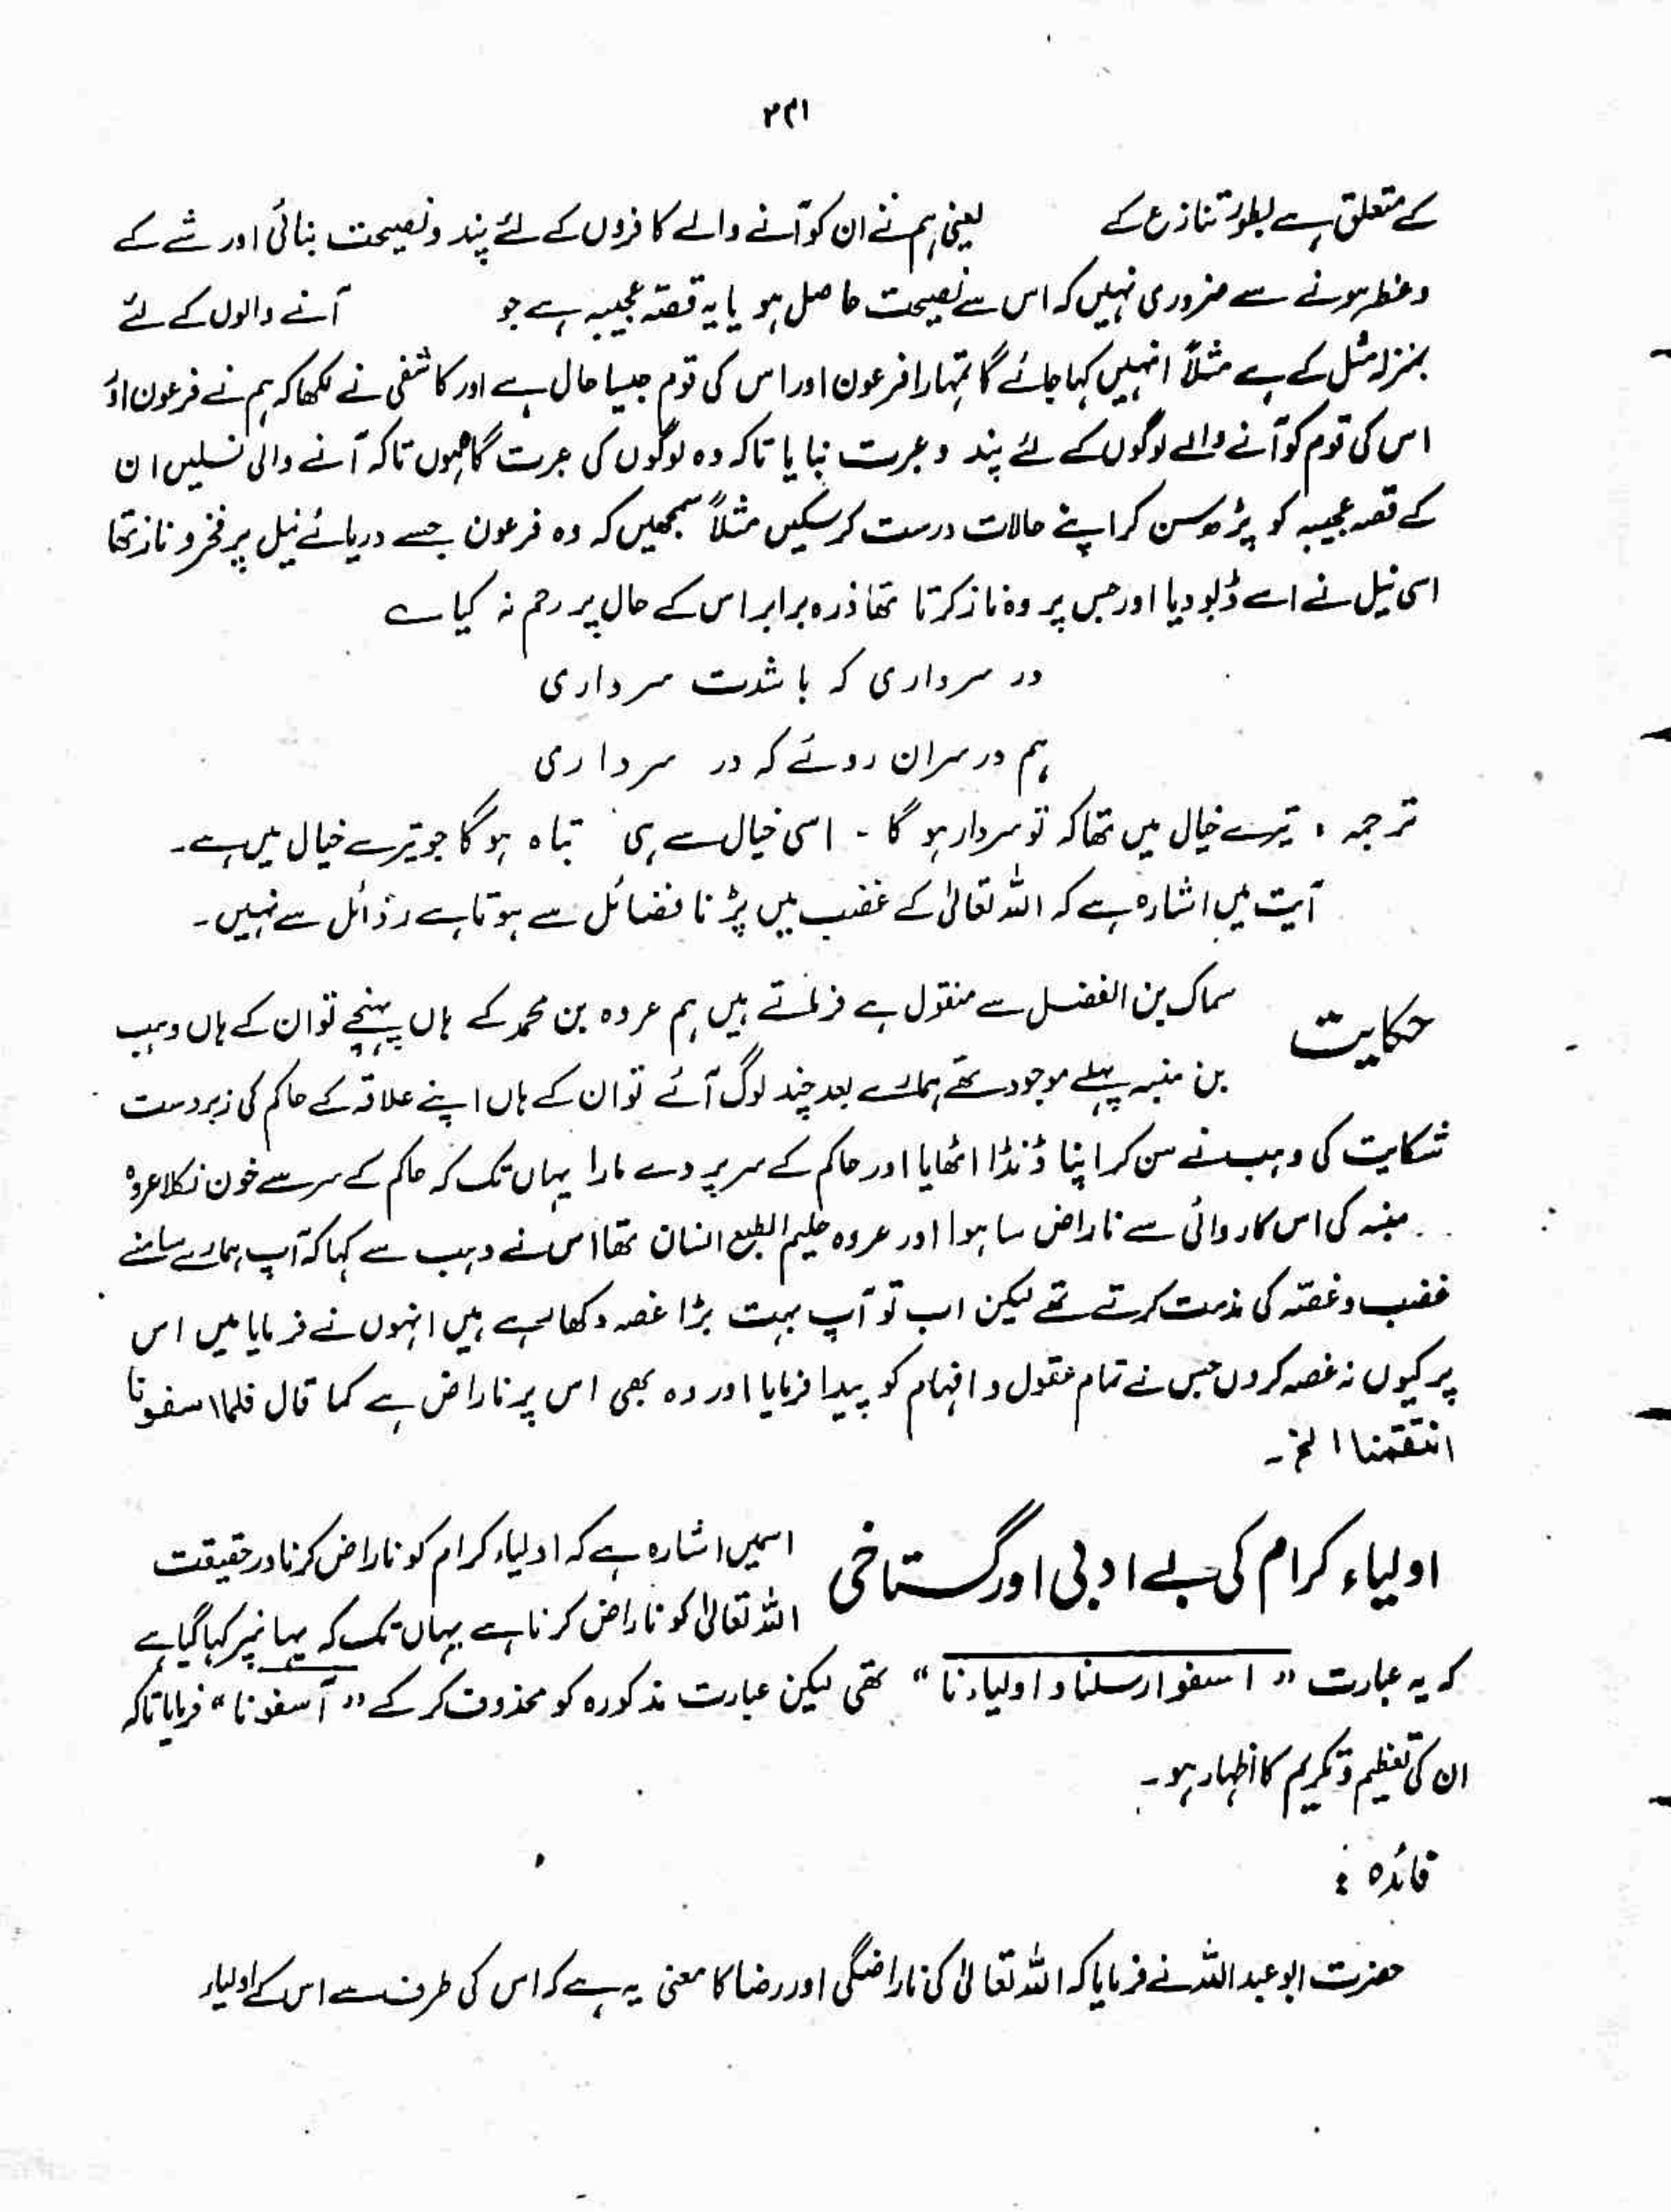 ۲۴۱
کے متعلق ہے بطور تنازع کے یعنی ہم نے ان کو آنے والے کافروں کے لئے پند و نصیحت بنائی اور شے کے
وعظ ہونے سے ضروری نہیں کہ اس سے نصیحت حاصل ہو یا یہ قصہ عجیبہ ہے جو آنے والوں کے لئے
بمنزلہ مثل کے ہے مثلاً انہیں کہا جائے گا تمہارا فرعون اور اس کی قوم جیسا حال ہے اور کاشفی نے لکھا کہ ہم نے فرعون اور
اس کی قوم کو آنے والے لوگوں کے لئے پند و عبرت بنایا تاکہ وہ لوگوں کی عبرت گاہ ہوں تاکہ آنے والی نسلیں ان
کے قصہ عجیبہ کو پڑھ سن کر اپنے حالات درست کر سکیں مثلاً سمجھیں کہ وہ فرعون جسے دریائے نیل پر فخر و ناز تھا
اسی نیل نے اسے ڈبو دیا اور جس پر وہ ناز کرتا تھا ذرہ برابر اس کے حال پر رحم نہ کیا ے
در سرداری کہ باشدت سرداری
ہم در سران روئے کہ در سرداری
ترجمہ : تیرے خیال میں تھا کہ تو سردار ہو گا ۔ اسی خیال سے ہی تباہ ہو گا جو تیرے خیال میں ہے۔
آیت میں اشارہ ہے کہ اللہ تعالیٰ کے غضب میں پڑنا فضائل سے ہوتا ہے رذائل سے نہیں۔
حکایت سماک بن الفضل سے منقول ہے فرماتے ہیں ہم عروہ بن محمد کے ہاں پہنچے تو ان کے ہاں وہب
بن منبہ پہلے موجود تھے ہمارے بعد چند لوگ آئے تو ان کے ہاں اپنے علاقہ کے حاکم کی زبردست
شکایت کی وہب نے سن کر اپنا ڈنڈا اٹھایا اور حاکم کے سر پر دے مارا یہاں تک کہ حاکم کے سر سے خون نکلا عروہ
منبہ کی اس کاروائی سے ناراض سا ہوا اور عروہ حلیم الطبع انسان تھا اس نے وہب سے کہا کہ آپ ہمارے سامنے
غضب و غصّہ کی مذمت کرتے تھے لیکن اب تو آپ بہت بڑا غصہ دکھا رہے ہیں انہوں نے فرمایا میں اس
پر کیوں نہ غصہ کروں جس نے تمام عقول و افہام کو پیدا فرمایا اور وہ بھی اس پر ناراض ہے کما قال فلما اسفونا
انتقمنا الخ۔
اولیاء کرام کی بے ادبی اور گستاخی اسمیں اشارہ ہے کہ اولیاء کرام کو ناراض کرنا درحقیقت
اللہ تعالیٰ کو ناراض کرنا ہے یہاں تک کہ یہانپر کہا گیا ہے
کہ یہ عبارت " اسفوا رسلنا و اولیاءنا " تھی لیکن عبارت مذکورہ کو محذوف کر کے " آسفونا " فرمایا تاکہ
ان کی تعظیم و تکریم کا اظہار ہو۔
فائدہ :
حضرت ابو عبد اللہ نے فرمایا کہ اللہ تعالیٰ کی ناراضگی اور رضا کا معنی یہ ہے کہ اس کی طرف سے اس کے اولیاء